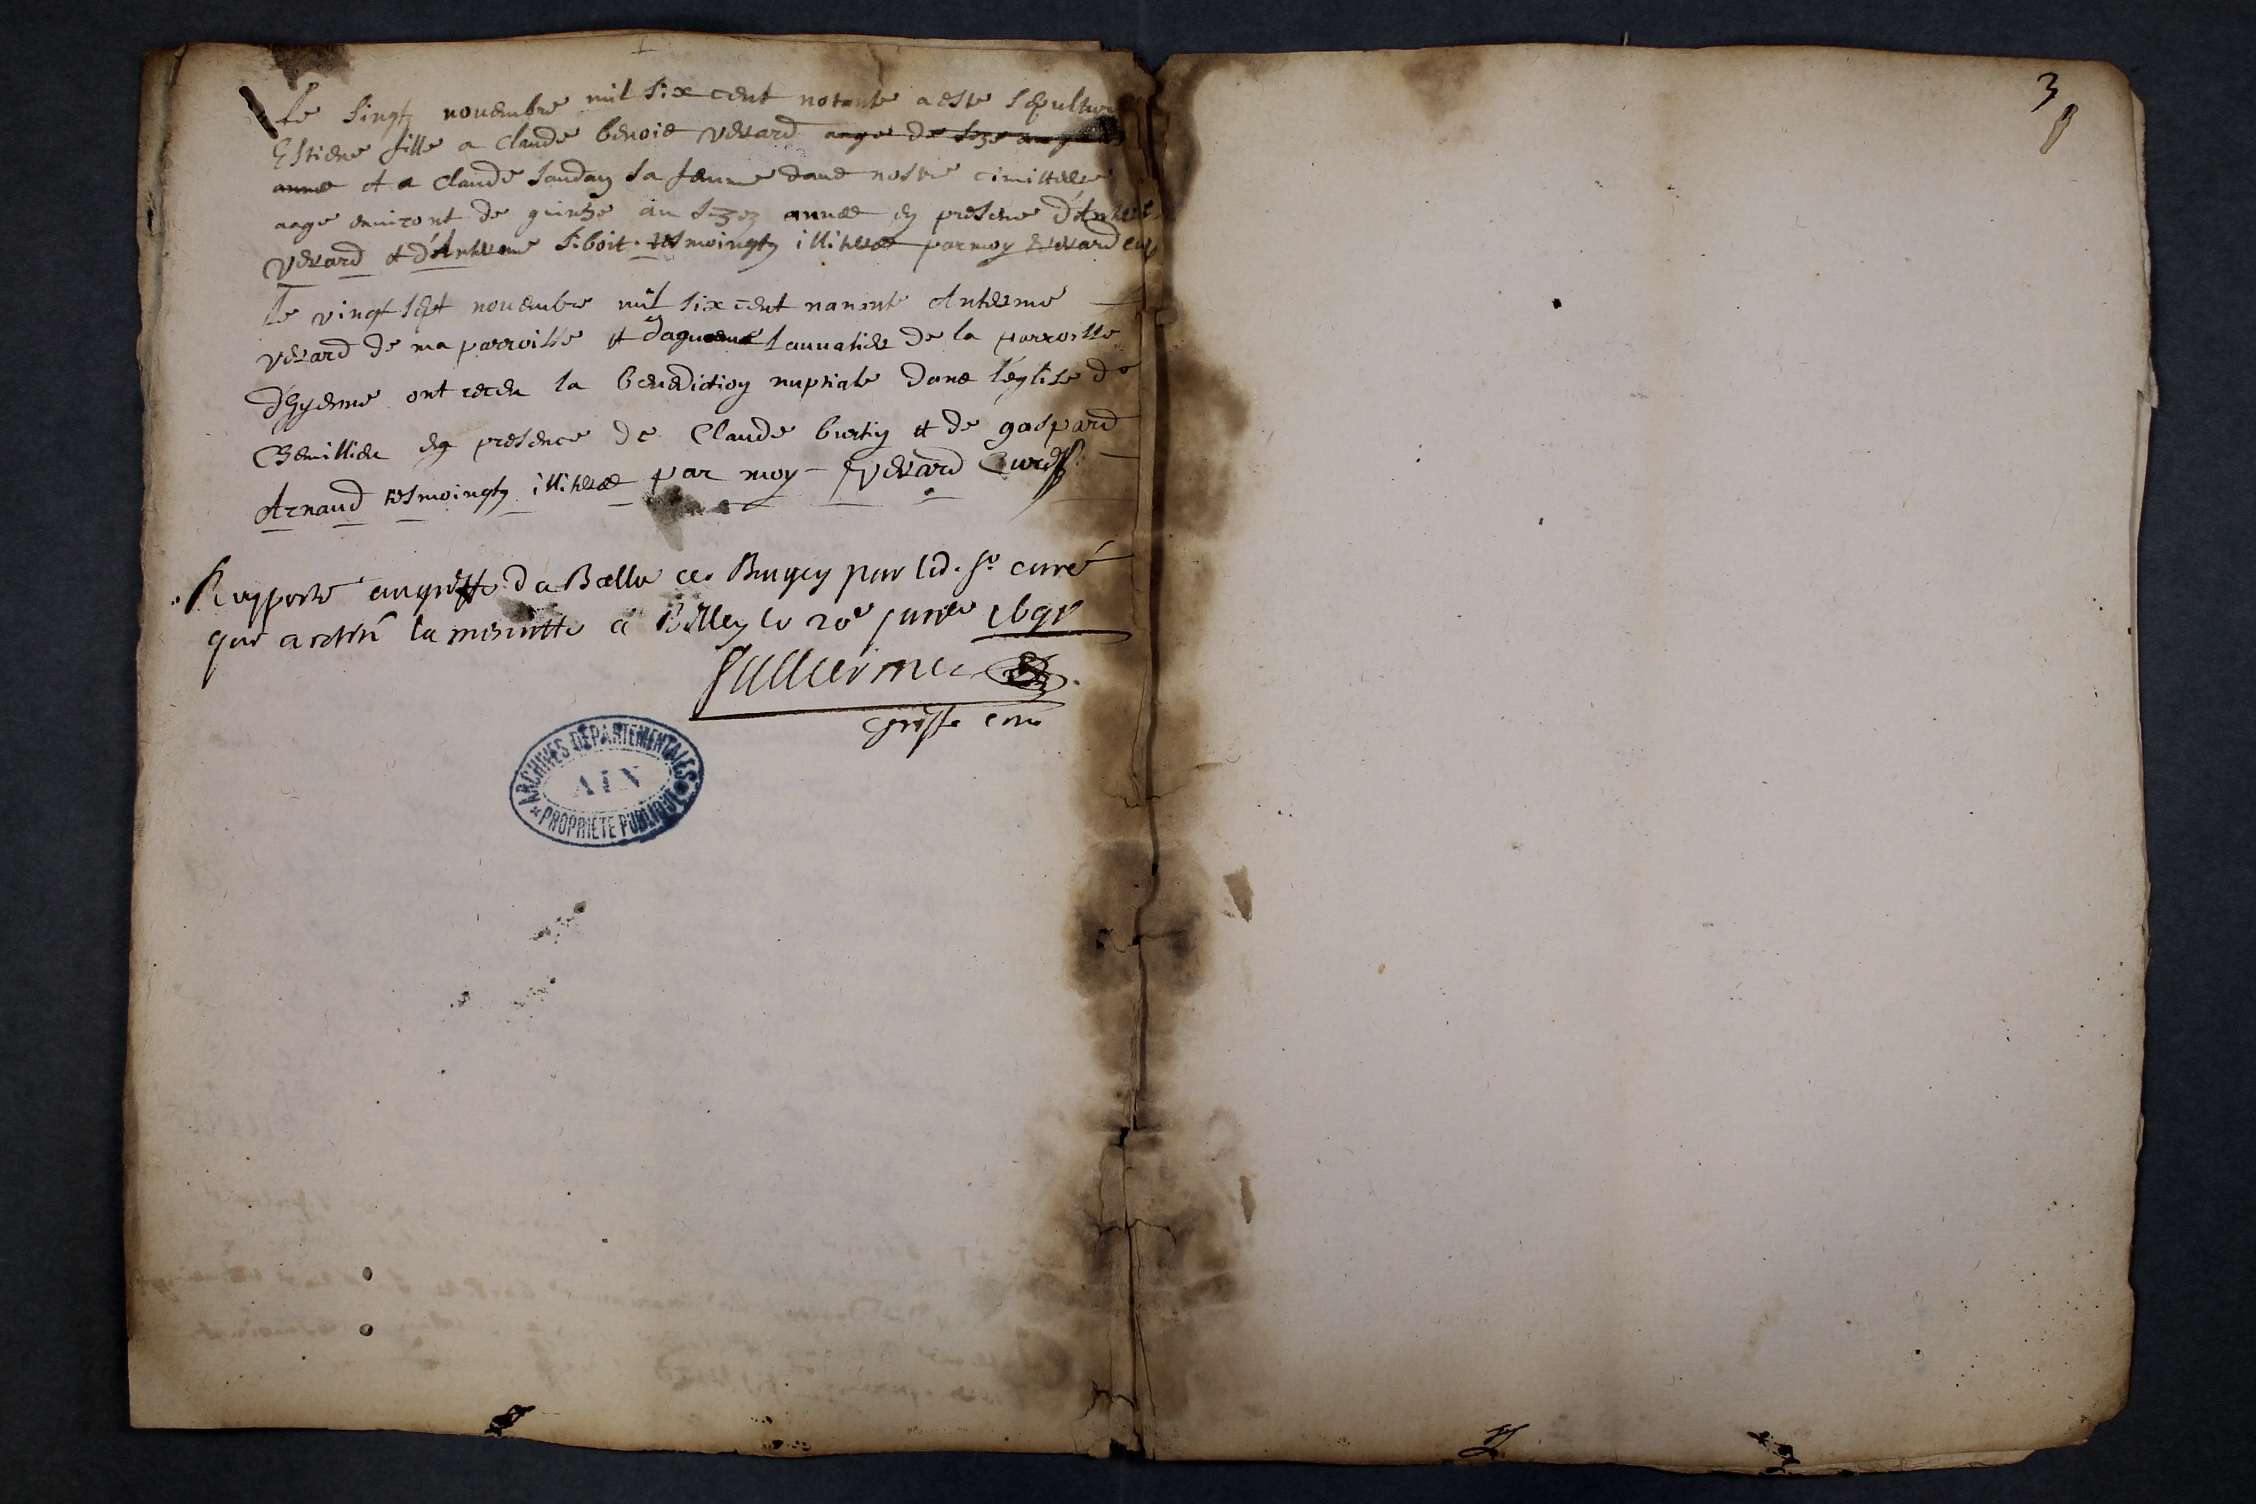 Le vingt novembre mil six cent nonante a este sepultur
Estiene fille a Claude benoit Verard aage de seze
annee et a Claude saudan sa femme dans nostre cimittiere
aage environt de quinze au annee en presence
Verard et d'Anthelme Siboit tesmoingtz illiteres par moy Verard
Le vingt sept novembre mil six cent nanante Antelme
Verard de ma parroisse et de la parroisse
d'Hyenne ont receu la benediction nuptiale dans l'eglise de
Gemillieu en presence de Claude burtin et de gaspard
Arnaud tesmoingtz illiteres par moy Verard Curé
Rapporté au greffe de Bugey par led. sr curé
qui a retiré la minutte a Belley le 20e 1691
Guillermet
greffe
ARCHIVES DÉPARTEMENTALES
AIN
PROPRIÉTÉ PUBLIQUE
3